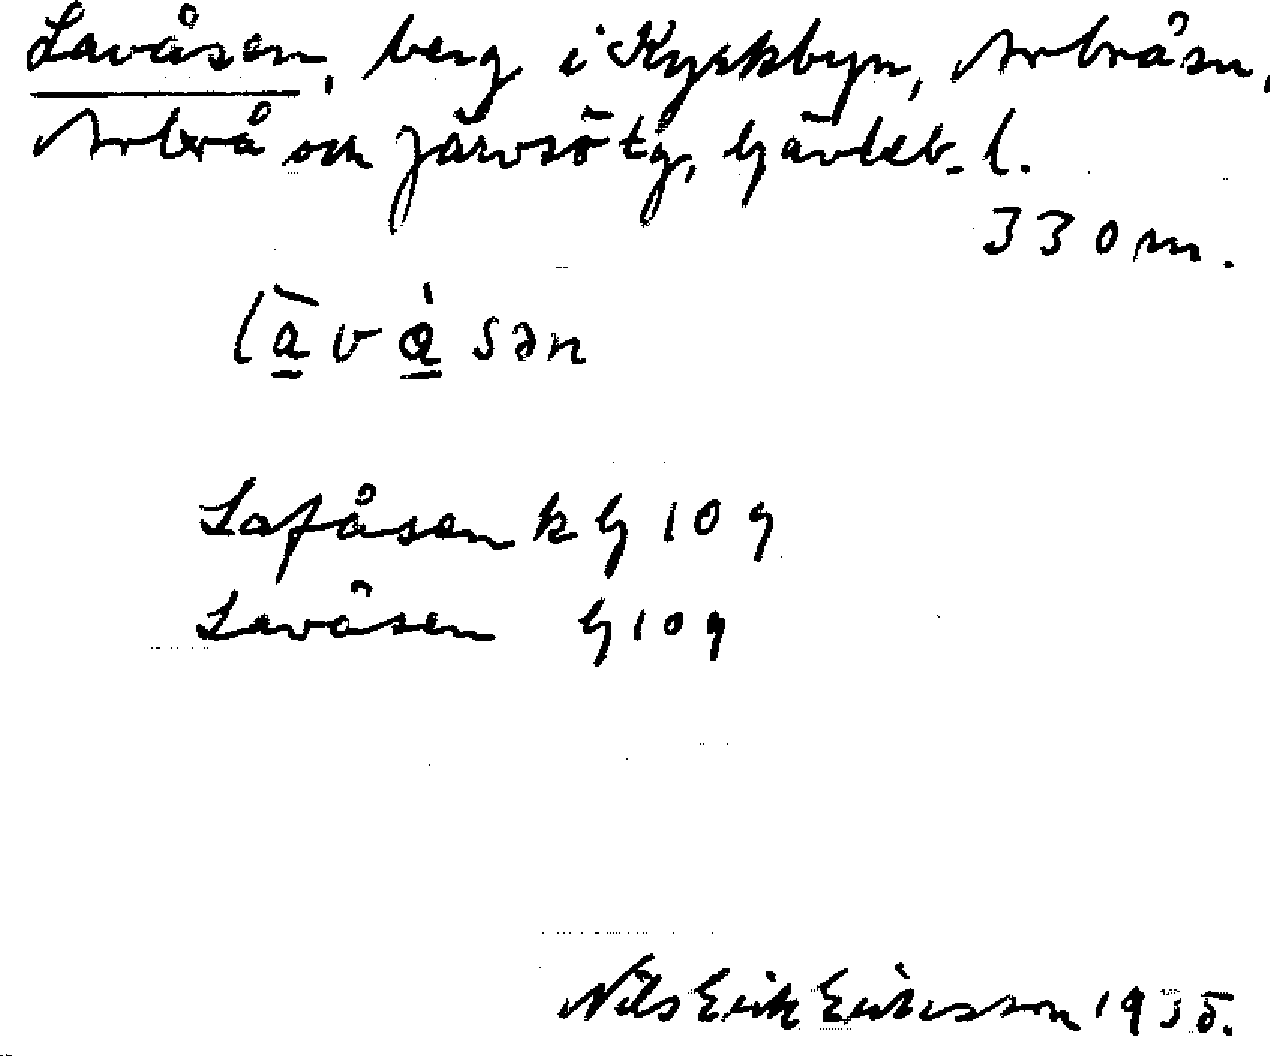 Lavåsen, berg i Kyrkbyn, Arbrå sn,
Arbrå och Järvsö tg, Gävleb. l.
330 m.
lāvå̀sən
Lafåsen k G 109
Lavåsen G 109
Nils Erik Eriksson 1935.